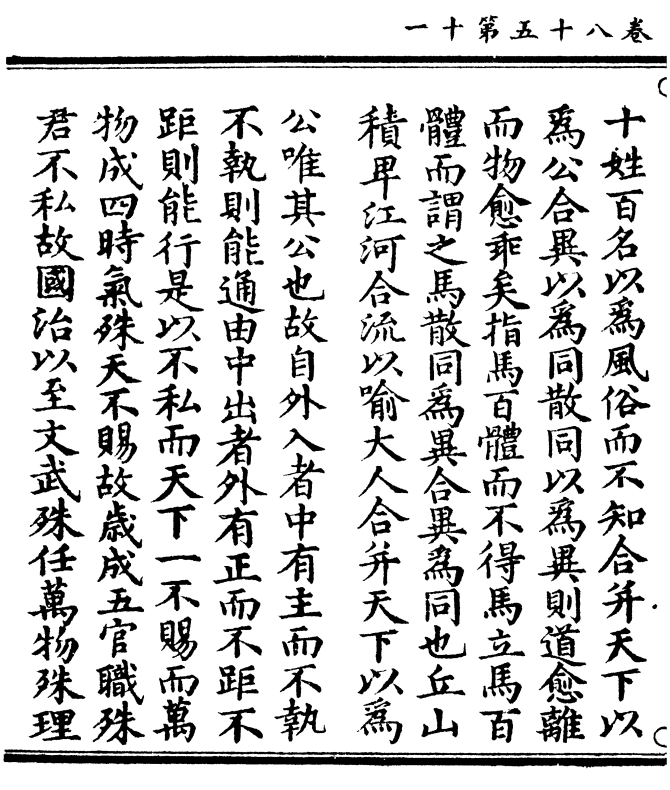 卷八十五第十一
十姓百名以為風俗而不知合并天下以
為公合異以為同散同以為異則道愈離
而物愈乖矣指馬百體而不得馬立馬百
體而謂之馬散同為異合異為同也丘山
積卑江河合流以喻大人合并天下以為
公唯其公也故自外入者中有主而不執
不執則能通由中出者外有正而不距不
距則能行是以不私而天下一不賜而萬
物成四時氣殊天不賜故歲成五官職殊
君不私故國治以至文武殊任萬物殊理